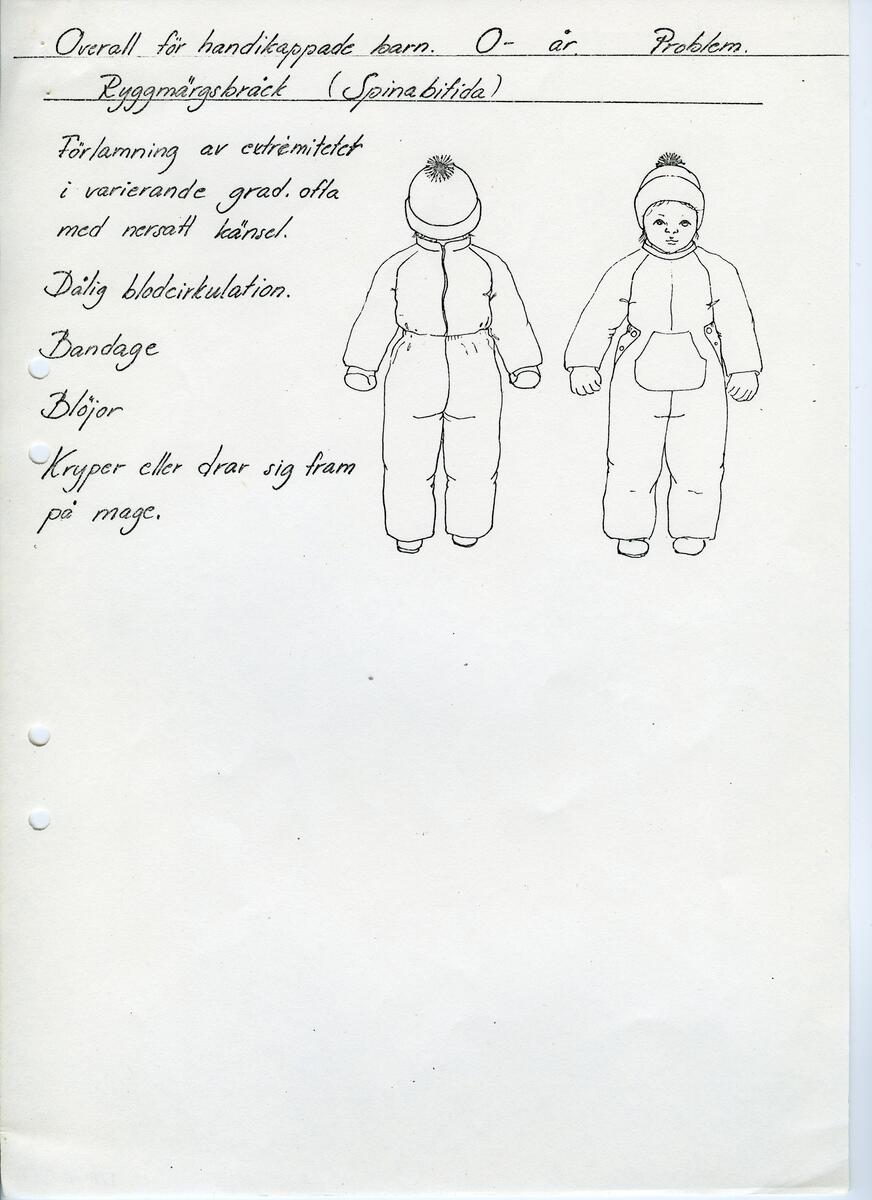 Overall för handikappade barn. 0- år. Problem.
Ryggmärgsbråck (Spinabifida)
Förlamning av extremiteter
i varierande grad. ofta
med nersatt känsel.
Dålig blodcirkulation.
Bandage
Blöjor
Kryper eller drar sig fram
på mage.